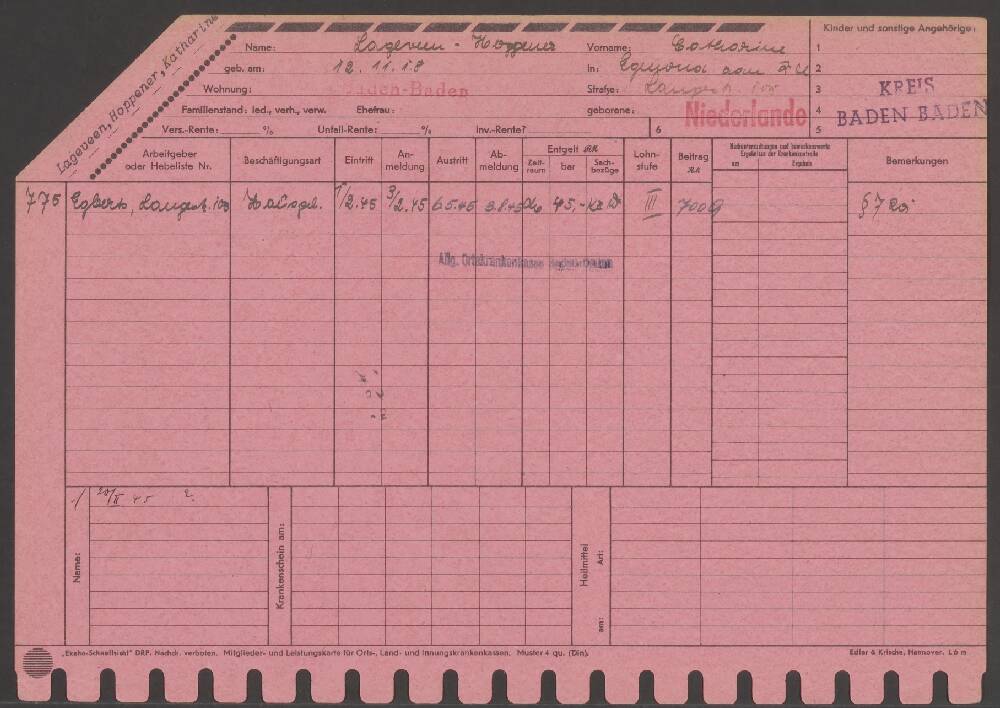 Lageveen, Hoppener, Katharine
Name: Lageveen - Hoppener Vorname: Catharine
geb. am: 12.11.18 in: Egmond aan
Wohnung: Baden-Baden Straße: Langest. 103
Familienstand: led., verh., verw. Ehefrau: geborene: Niederlande
Vers.-Rente: % Unfall-Rente: % Inv.-Rente?
Kinder und sonstige Angehörige:
1
2
3
4
5
6
KREIS
BADEN BADEN
Arbeitgeber oder Hebeliste Nr.
Beschäftigungsart
Eintritt
An-meldung
Austritt
Ab-meldung
Entgelt RM
Zeit-raum
bar
Sach-bezüge
Lohn-stufe
Beitrag RM
am
Ergebnis
Bemerkungen
775 Egberts, Langest. 103 Hausgeh. 1/2.45 3/2.45 6.5.45 45,- III 700
Allg. Ortskrankenkasse Baden-Baden
20/II 45 2.
Name:
Krankenschein am:
Heilmittel
Art:
am:
„Ekaha-Schnellsicht" DRP. Nachdr. verboten. Mitglieder- und Leistungskarte für Orts-, Land- und Innungskrankenkassen. Muster 4 qu. (Din).
Edler & Krische, Hannover. L 6 m